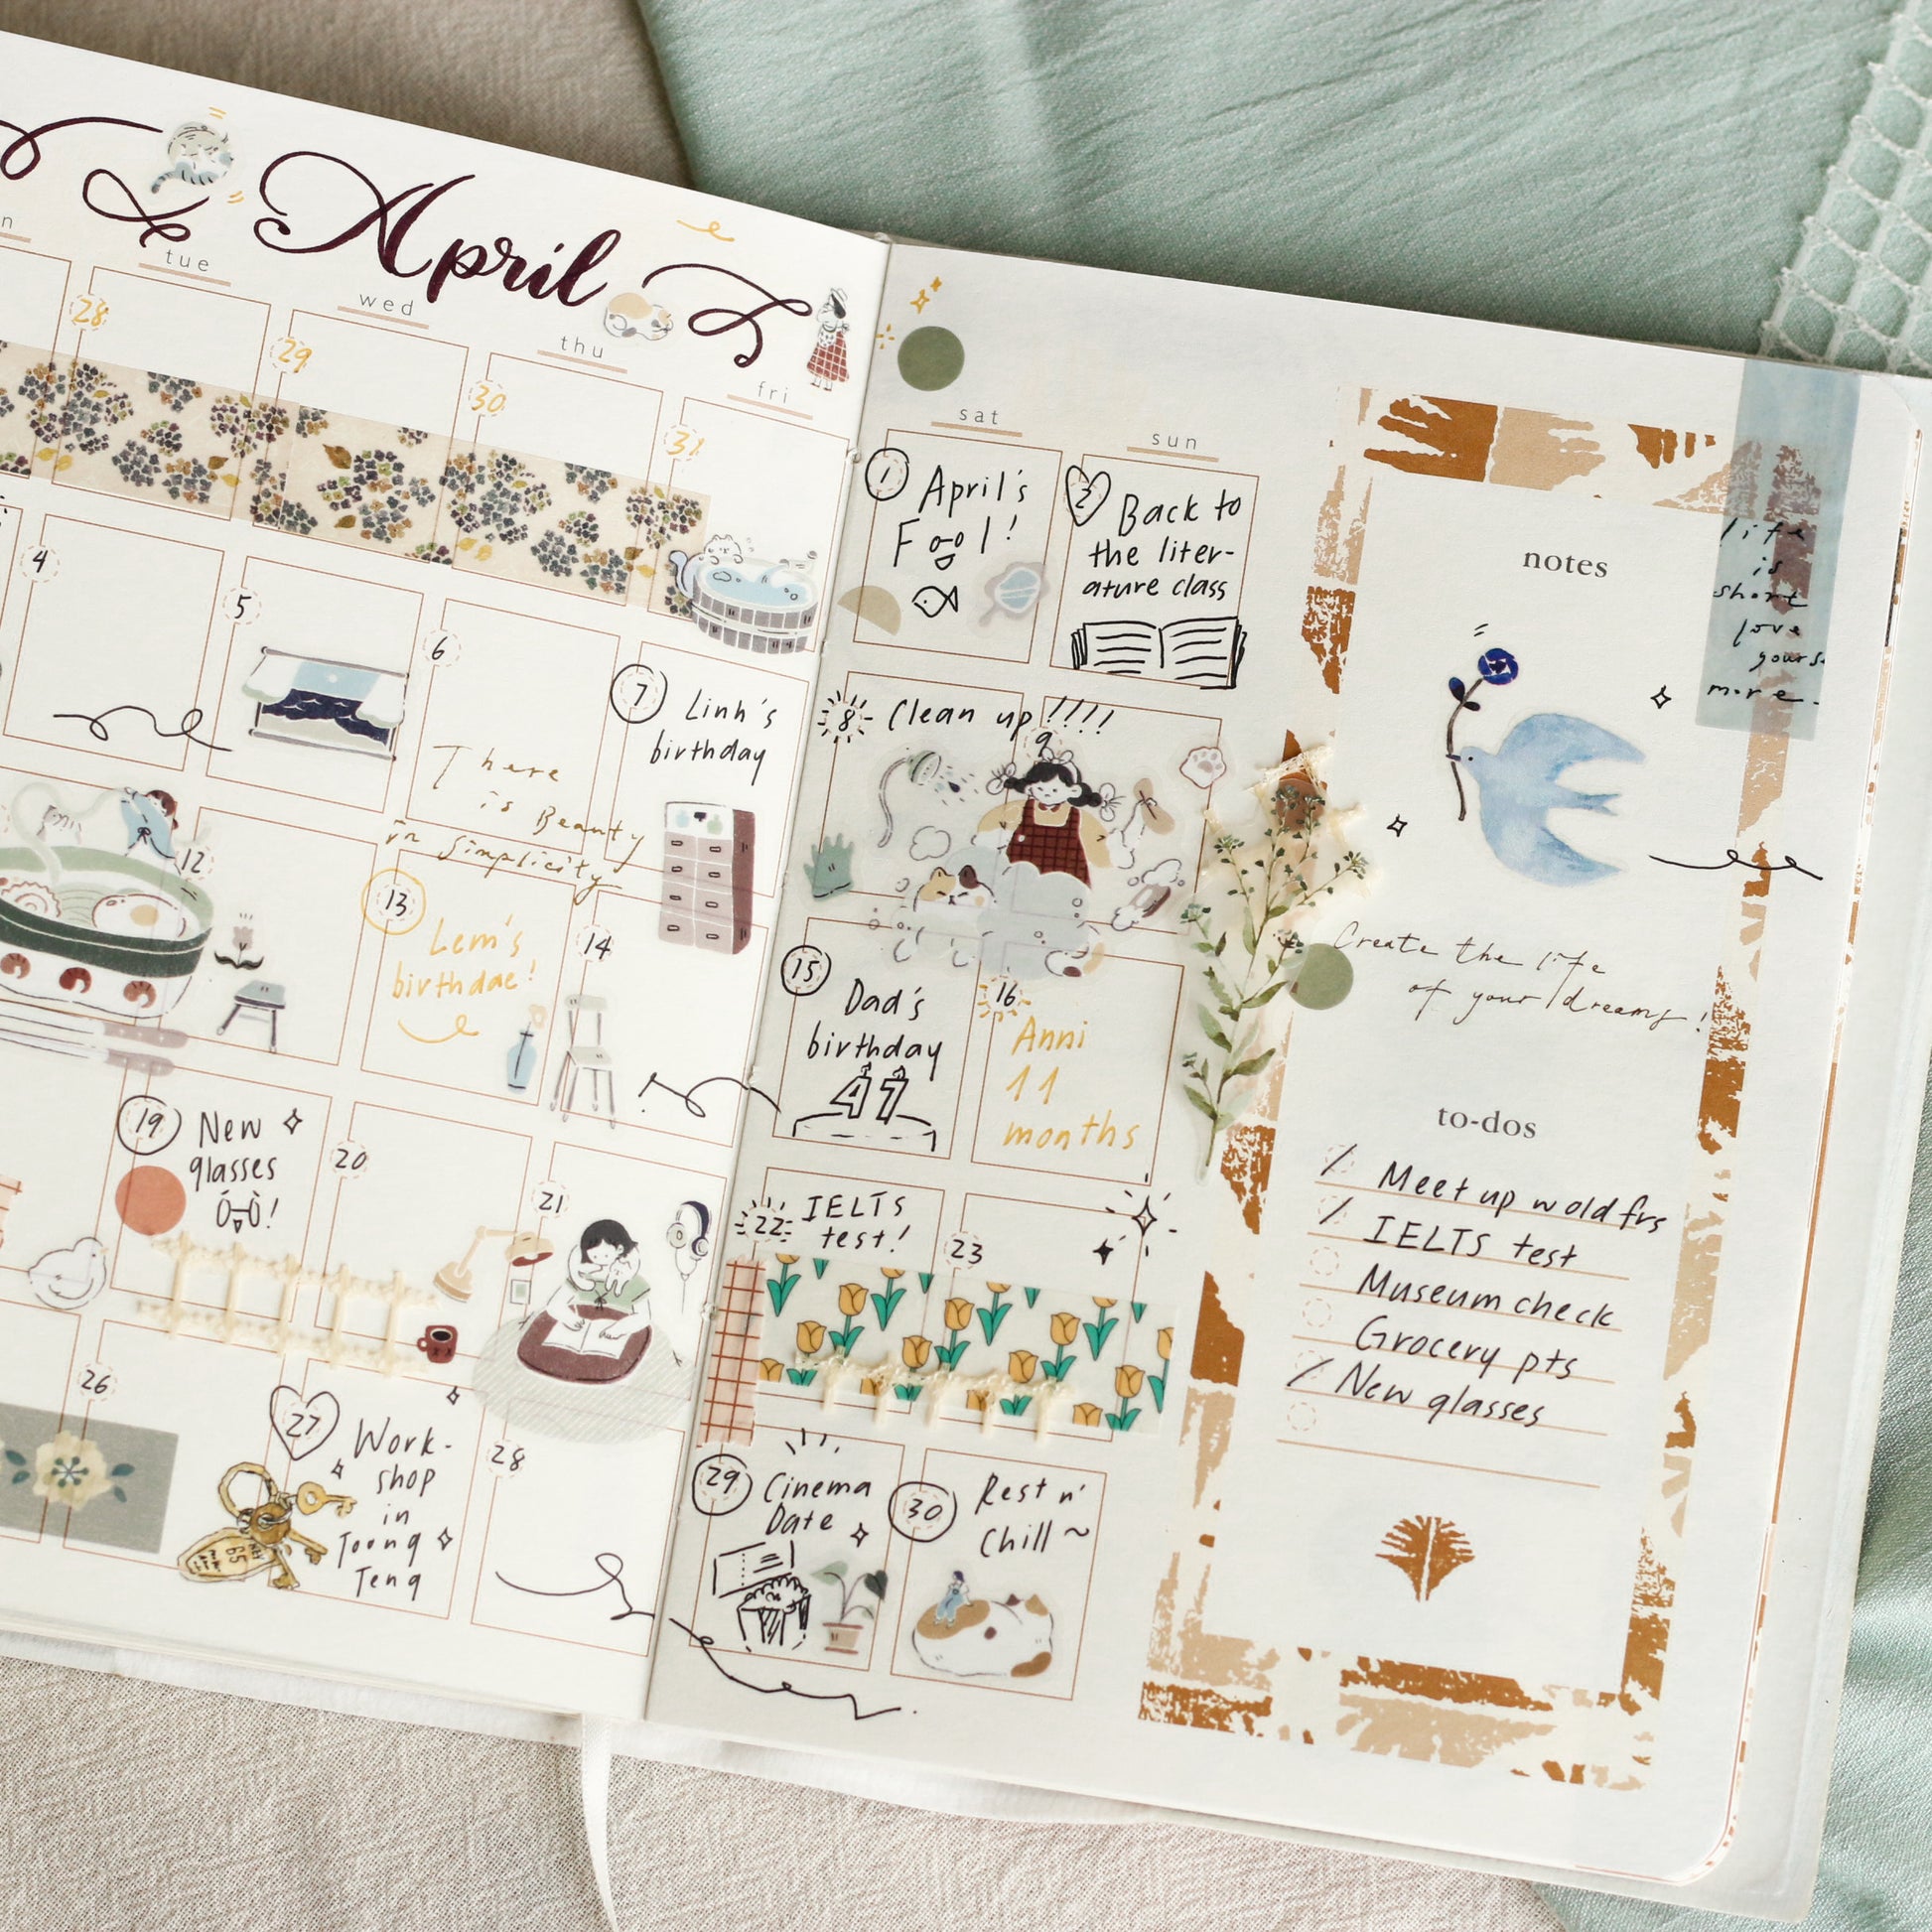 April
tue
wed
thu
fri
28
29
30
31
4
5
6
There
is Beauty
in simplicity
7
Linh's
birthday
12
13
Lem's
birthdae!
14
19
New
glasses
20
21
26
27
Work-
shop
in
Toong
Teng
28
sat
sun
1
April's
Fool!
2
Back to
the liter-
ature class
8
Clean up!!!!
9
15
Dad's
birthday
47
16
Anni
11
months
22
IELTS
test!
23
29
Cinema
Date
30
Rest n'
Chill ~
notes
life
is
short
love
more.
Create the life
of your dreams!
to-dos
Meet up w old frs
IELTS test
Museum check
Grocery pts
New glasses